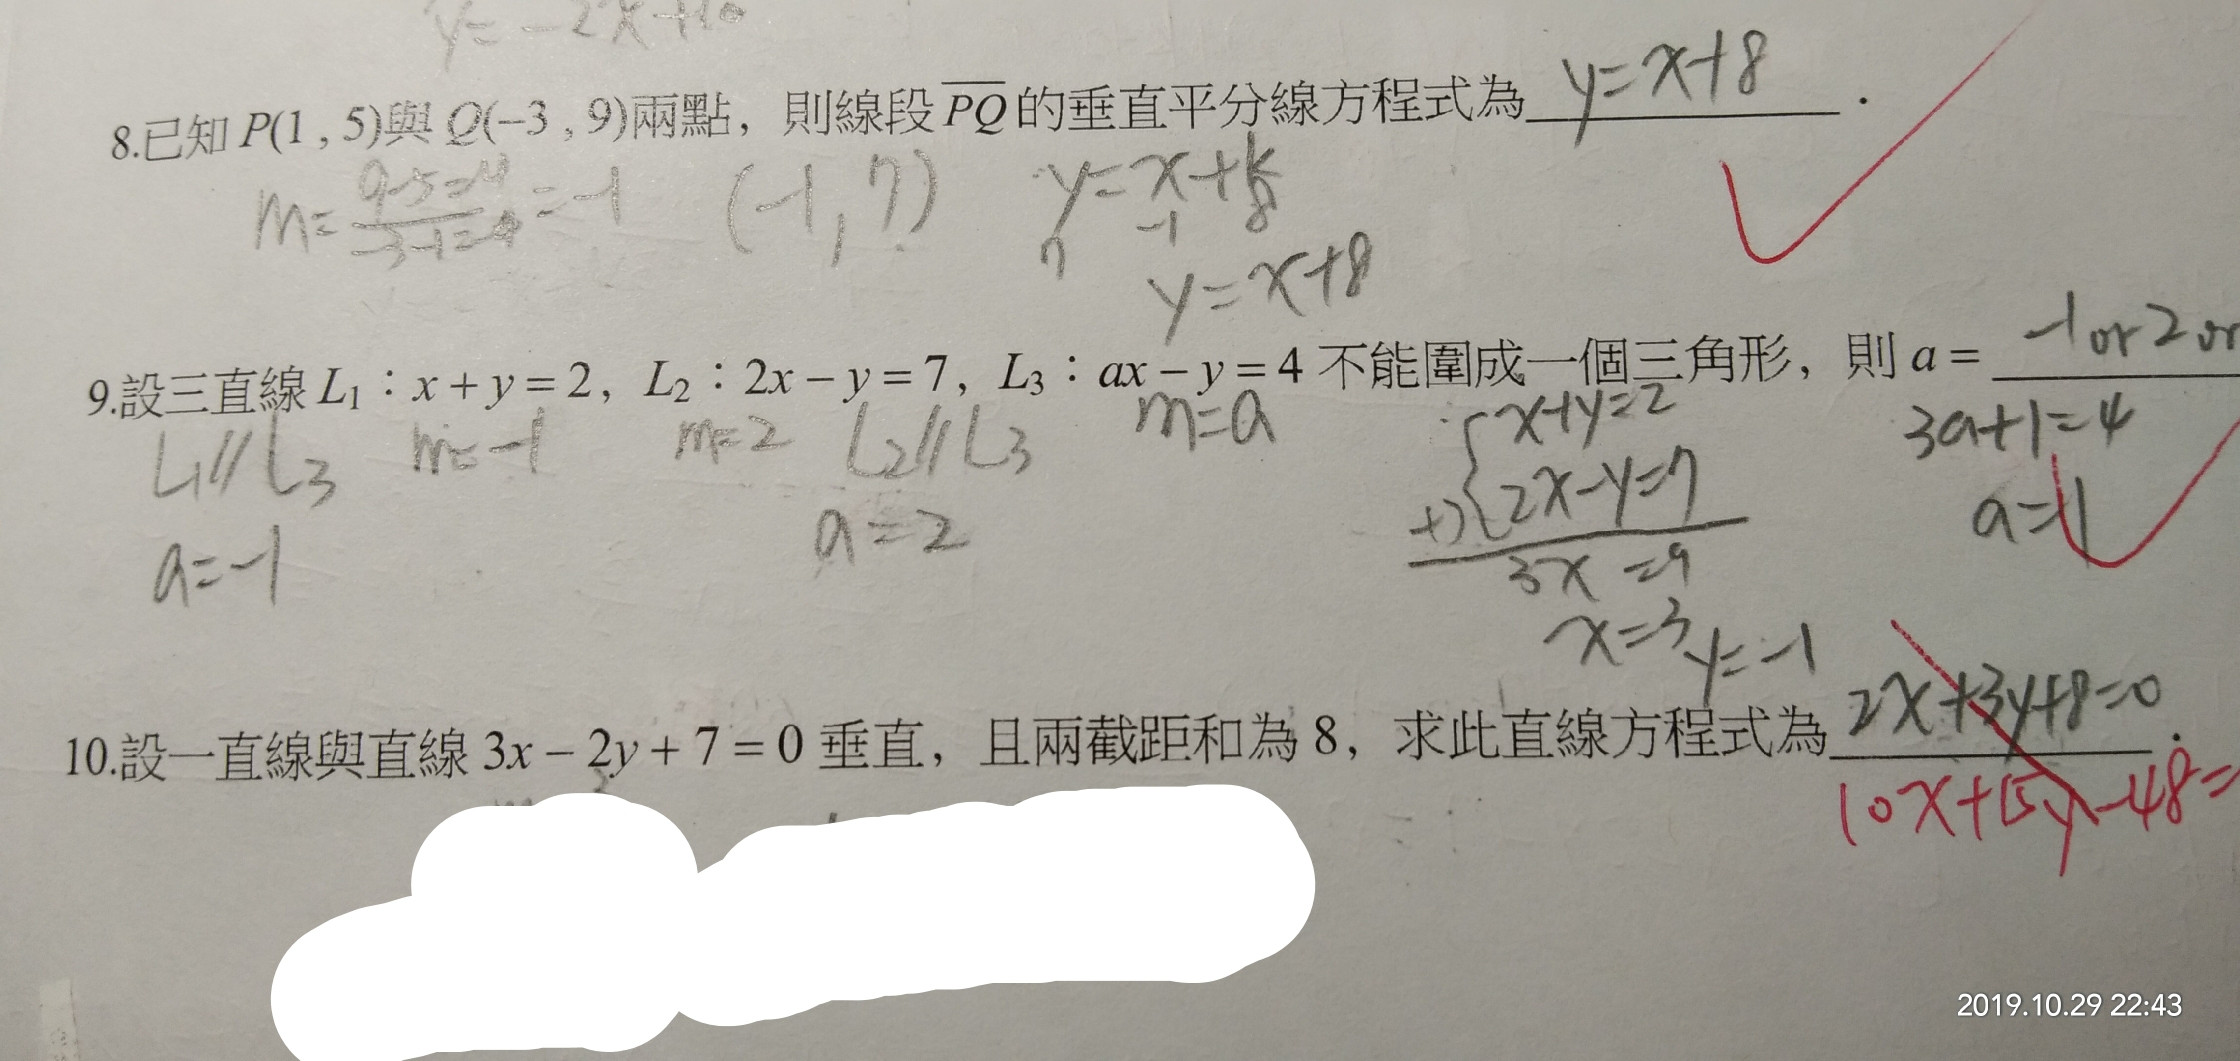 y=-2x+10
8.已知 P(1 , 5)與 Q(−3 , 9)兩點，則線段 PQ 的垂直平分線方程式為 y=x+8 .
m= 9-5=4 / -3-1=-4 =-1 (-1, 7) y=x+k
7 -1 8
y=x+8
9.設三直線 L1：x + y = 2，L2：2x − y = 7，L3：ax − y = 4 不能圍成一個三角形，則 a = -1 or 2 or
L1//L3 m=-1 m=2 L2//L3 m=a x+y=2 3a+1=4
a=-1 a=2 +) 2x-y=7 a=1
3x=9
x=3 y=-1
10.設一直線與直線 3x − 2y + 7 = 0 垂直，且兩截距和為 8，求此直線方程式為 2x+3y+8=0 .
10x+15y-48=
2019.10.29 22:43